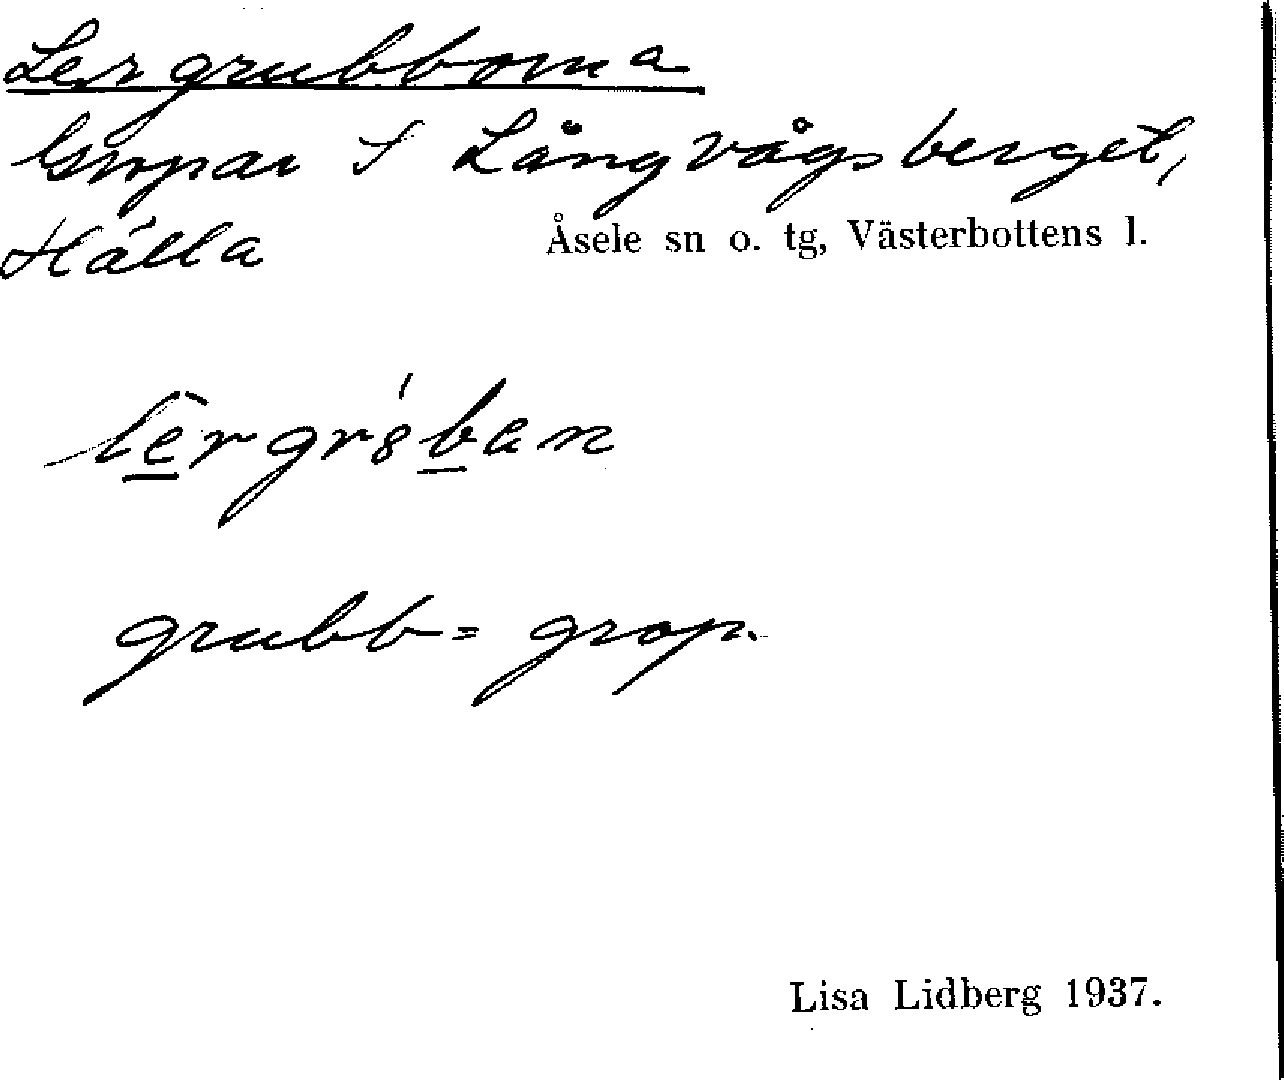 Lergrubborna
Gropar S Långvågsberget,
Hälla Åsele sn o. tg, Västerbottens l.
lērgr8́ban
grubb = grop.
Lisa Lidberg 1937.